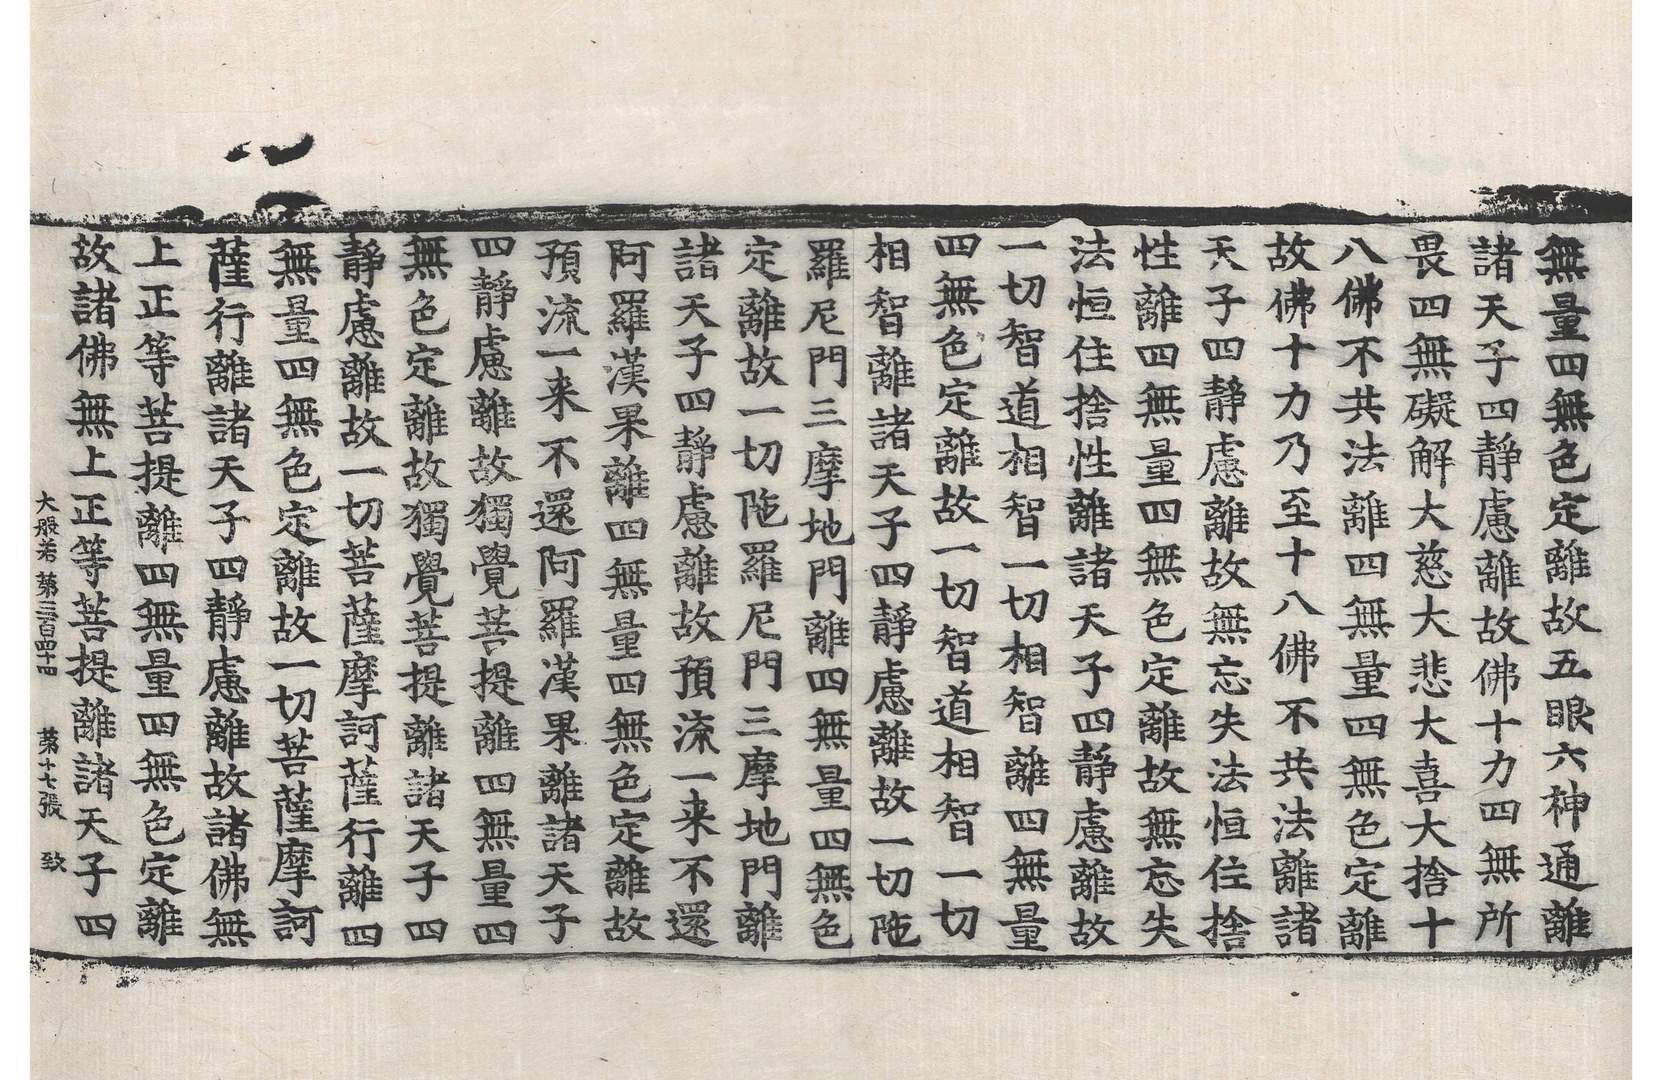 無量四無色定離故五眼六神通離
諸天子四靜慮離故佛十力四無所
畏四無礙解大慈大悲大喜大捨十
八佛不共法離四無量四無色定離
故佛十力乃至十八佛不共法離諸
天子四靜慮離故無忘失法恒住捨
性離四無量四無色定離故無忘失
法恒住捨性離諸天子四靜慮離故
一切智道相智一切相智離四無量
四無色定離故一切智道相智一切
相智離諸天子四靜慮離故一切陁
羅尼門三摩地門離四無量四無色
定離故一切陁羅尼門三摩地門離
諸天子四靜慮離故預流一来不還
阿羅漢果離四無量四無色定離故
預流一来不還阿羅漢果離諸天子
四靜慮離故獨覺菩提離四無量四
無色定離故獨覺菩提離諸天子四
靜慮離故一切菩薩摩訶薩行離四
無量四無色定離故一切菩薩摩訶
薩行離諸天子四靜慮離故諸佛無
上正等菩提離四無量四無色定離
故諸佛無上正等菩提離諸天子四
大般若第三百四十四 第十七張 致